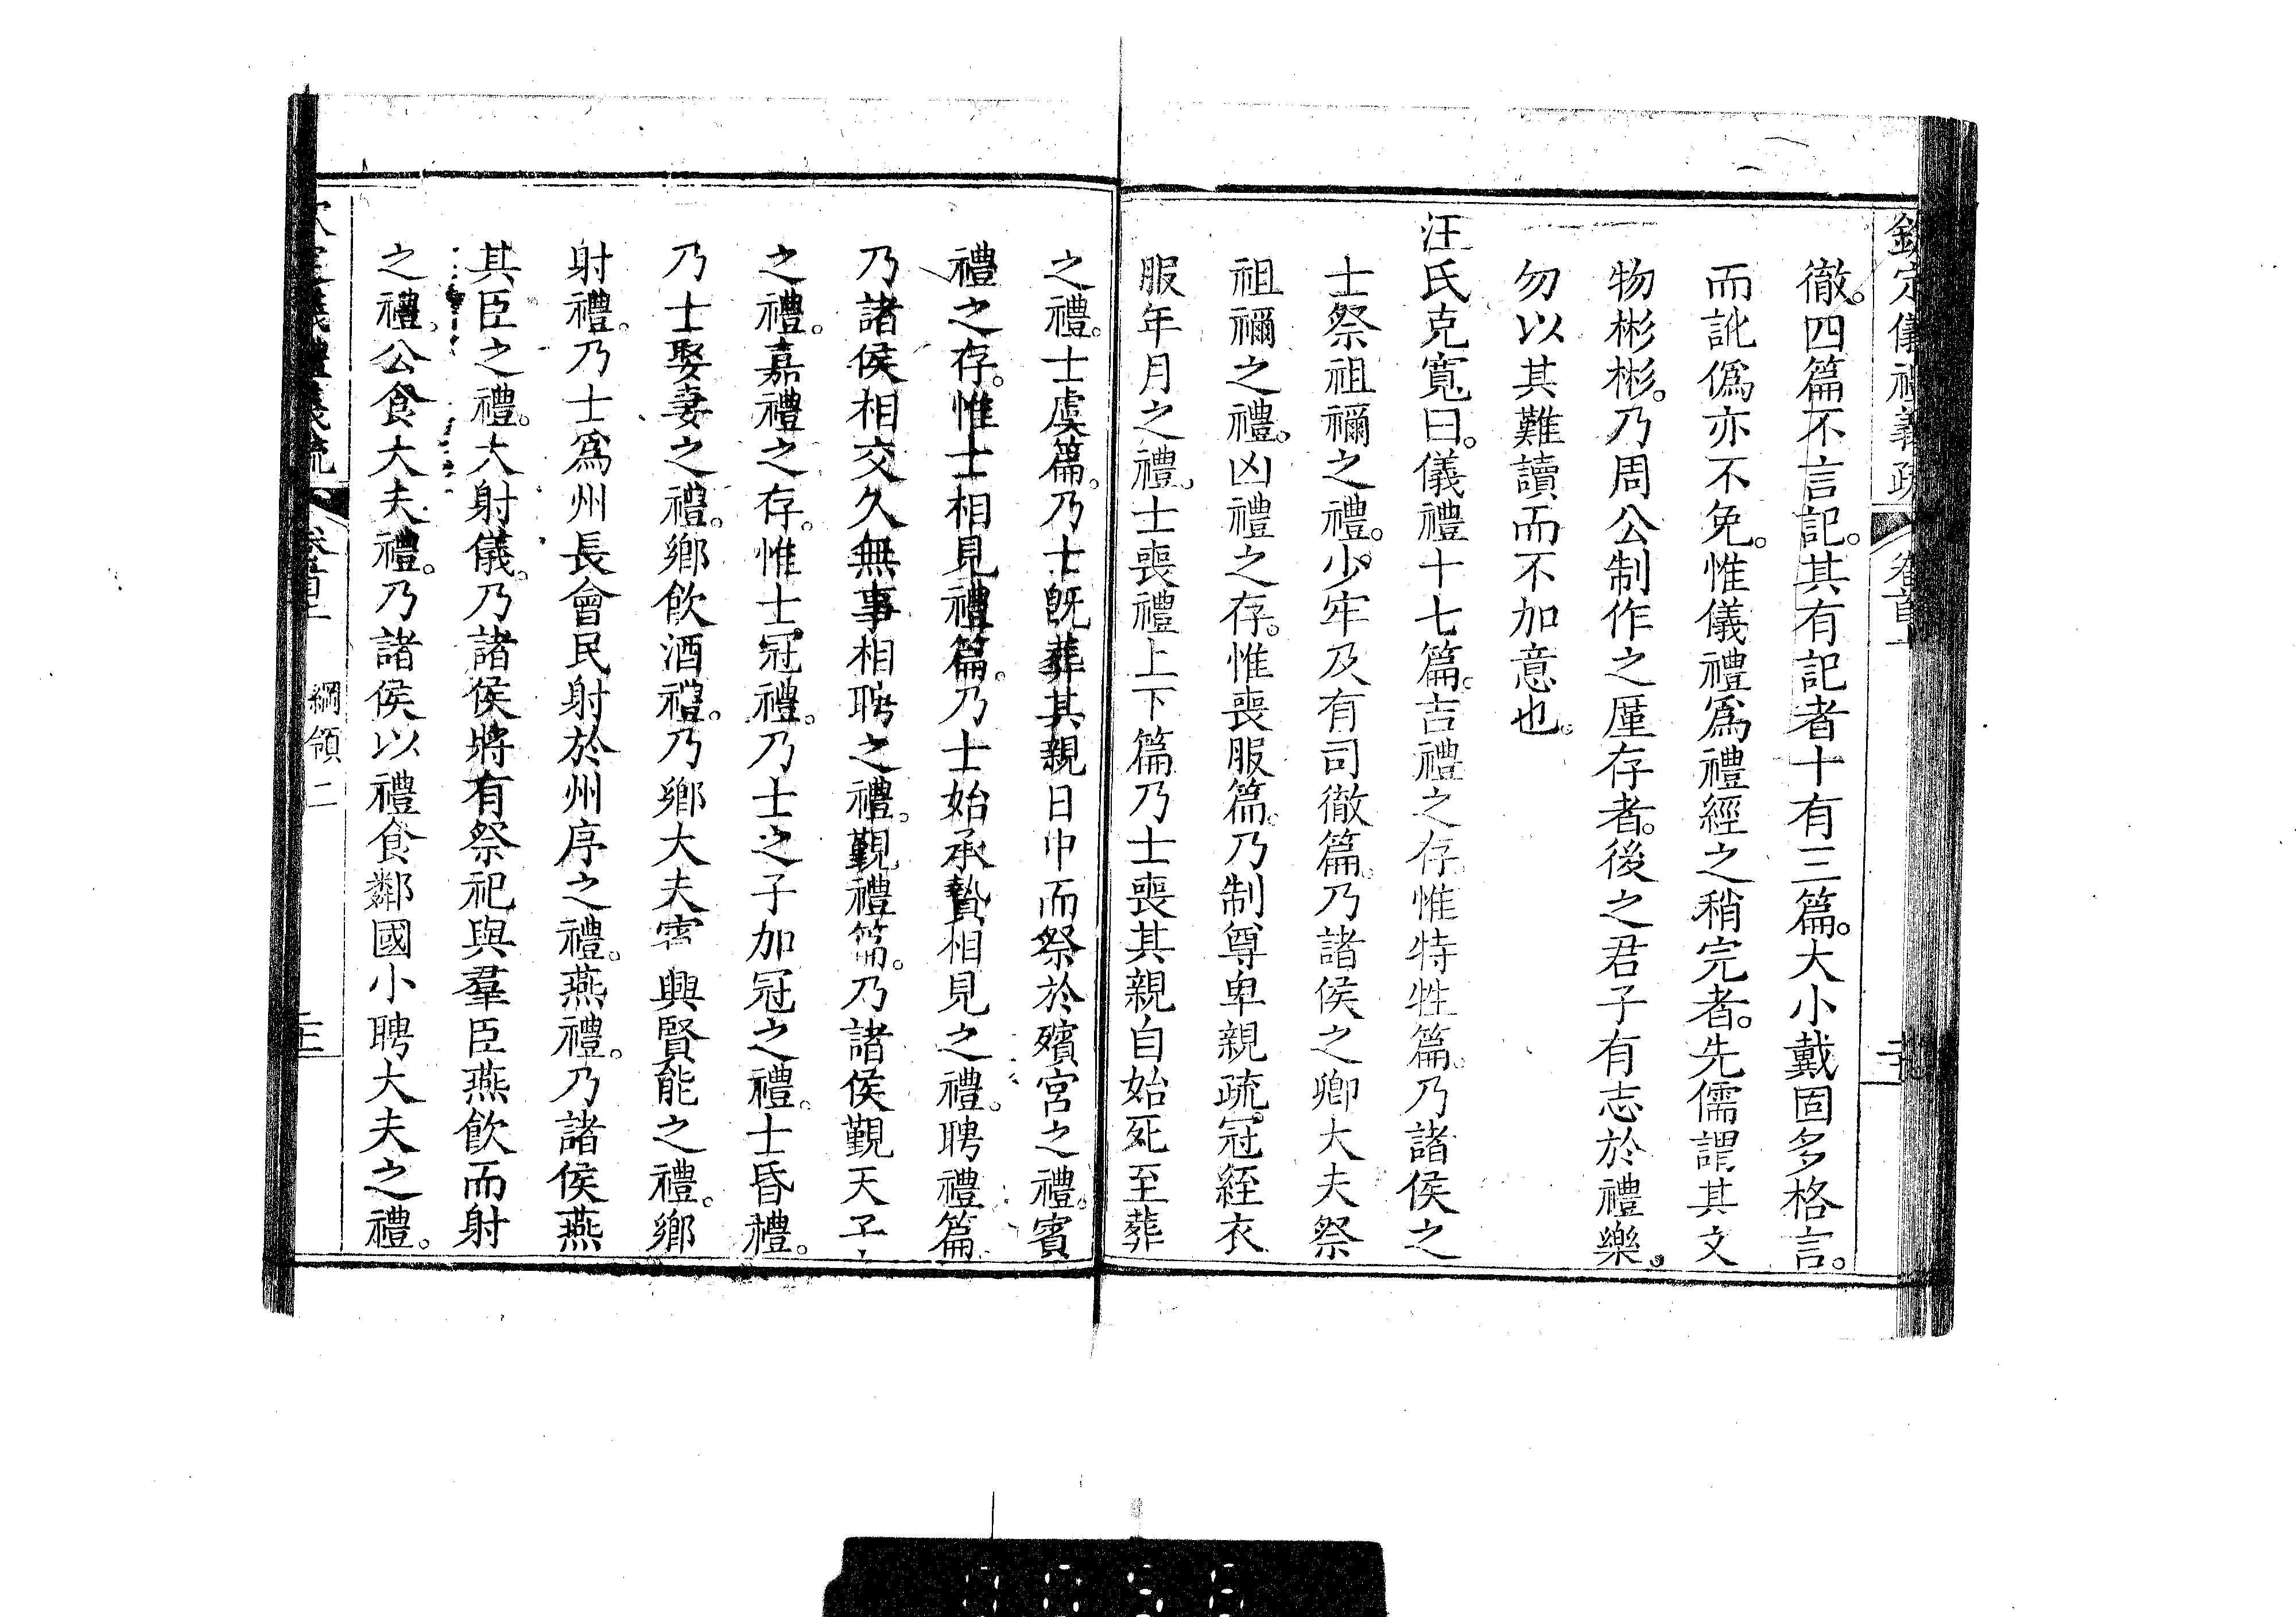 欽定儀禮義疏 卷首上
徹。四篇不言記。其有記者十有三篇。大小戴固多格言。
而訛僞亦不免。惟儀禮爲禮經之稍完者。先儒謂其文
物彬彬。乃周公制作之厪存者。後之君子有志於禮樂。
勿以其難讀而不加意也。
汪氏克寬曰。儀禮十七篇。吉禮之存。惟特牲篇。乃諸侯之
士祭祖禰之禮。少牢及有司徹篇。乃諸侯之卿大夫祭
祖禰之禮。凶禮之存。惟喪服篇。乃制尊卑親疏。冠絰衣
服年月之禮。士喪禮上下篇乃士喪其親自始死至葬
之禮。士虞篇。乃士旣葬其親日中而祭於殯宮之禮。賓
禮之存。惟士相見禮篇。乃士始承贄相見之禮。聘禮篇
乃諸侯相交久無事相聘之禮。覲禮篇。乃諸侯覲天子
之禮。嘉禮之存。惟士冠禮。乃士之子加冠之禮。士昏禮。
乃士娶妻之禮。鄉飲酒禮。乃鄉大夫賓興賢能之禮。鄉
射禮。乃士爲州長會民射於州序之禮。燕禮。乃諸侯燕
其臣之禮。大射儀。乃諸侯將有祭祀與羣臣燕飲而射
之禮。公食大夫禮。乃諸侯以禮食鄰國小聘大夫之禮。
欽定儀禮義疏 卷首上 綱領二